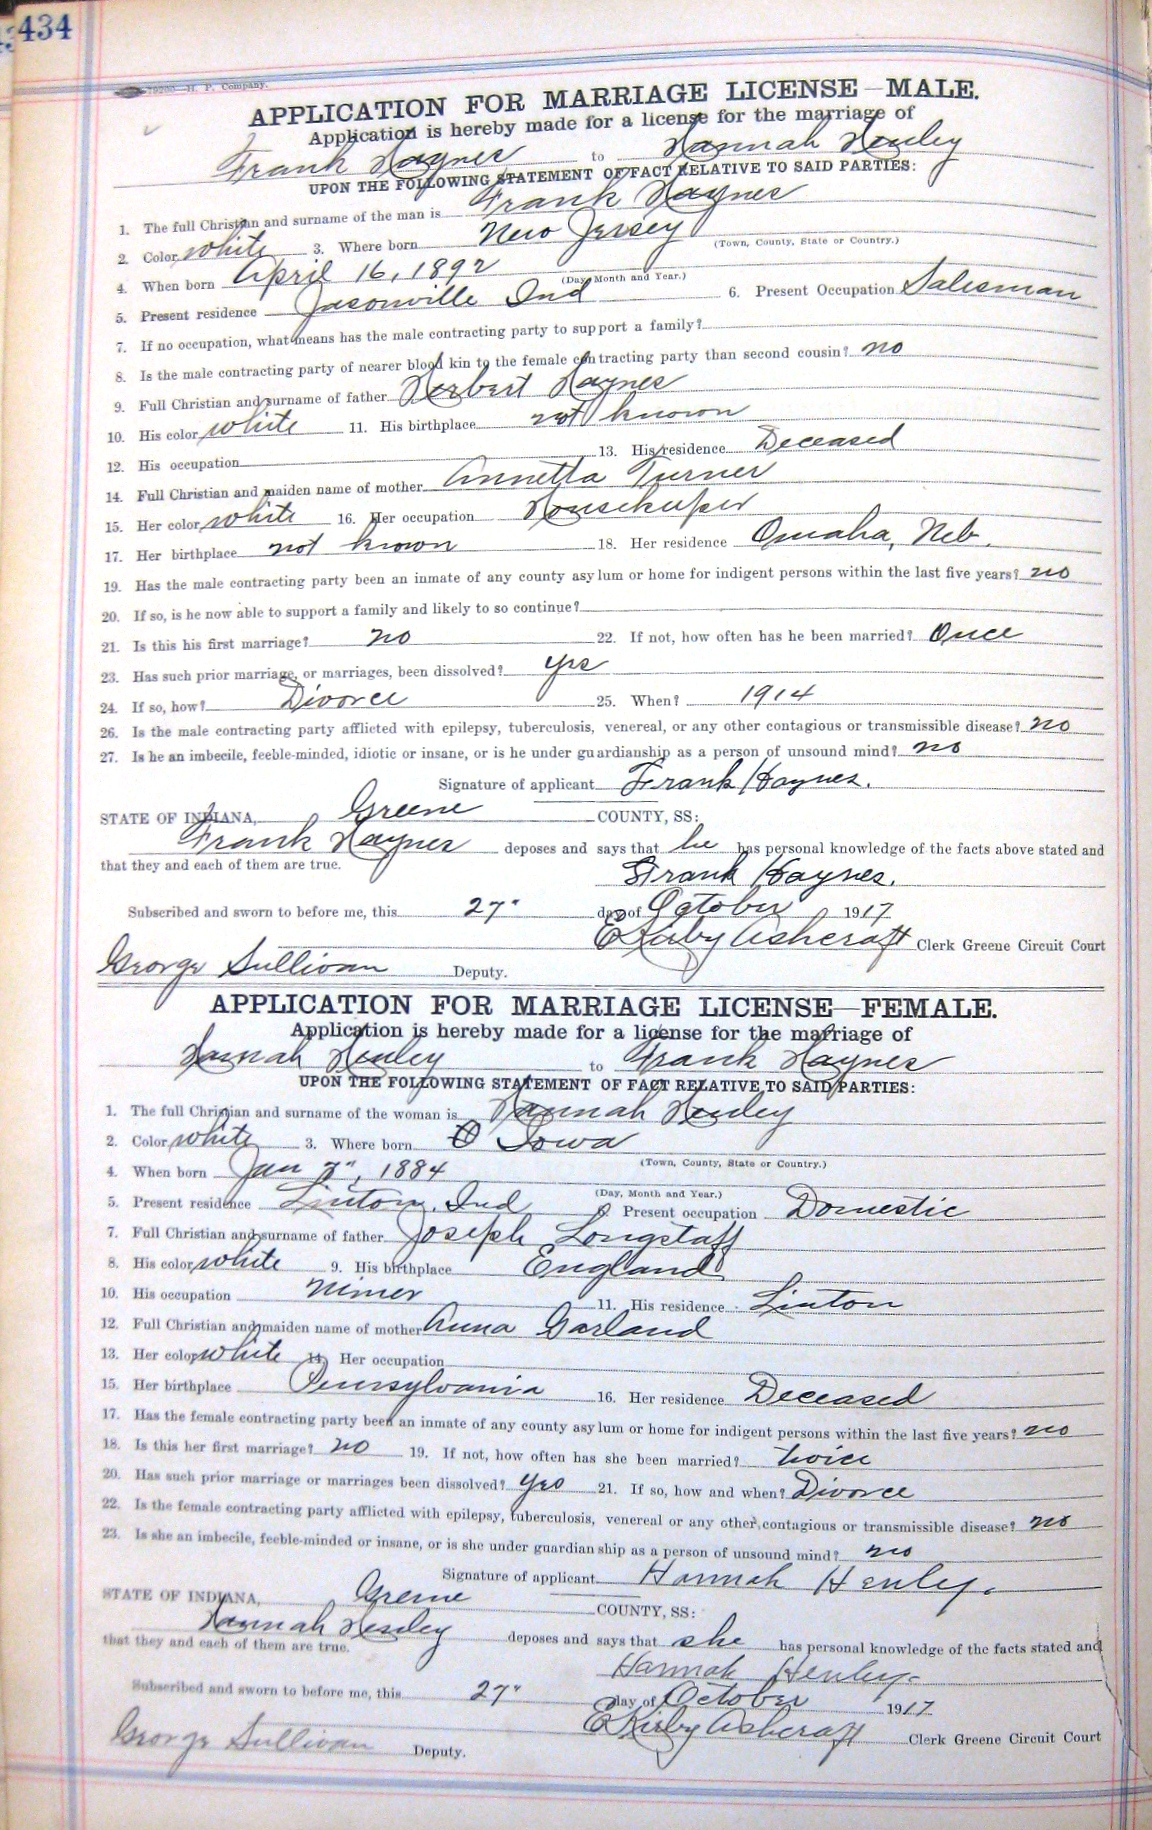 434
79200—H. P. Company.
APPLICATION FOR MARRIAGE LICENSE—MALE.
Application is hereby made for a license for the marriage of
Frank Haynes to Hannah Henley
UPON THE FOLLOWING STATEMENT OF FACT RELATIVE TO SAID PARTIES:
1. The full Christian and surname of the man is Frank Haynes
2. Color white 3. Where born New Jersey (Town, County, State or Country.)
4. When born April 16, 1892 (Day, Month and Year.)
5. Present residence Jasonville Ind 6. Present Occupation Salesman
7. If no occupation, what means has the male contracting party to support a family?
8. Is the male contracting party of nearer blood kin to the female contracting party than second cousin? no
9. Full Christian and surname of father Herbert Haynes
10. His color white 11. His birthplace not known
12. His occupation 13. His residence Deceased
14. Full Christian and maiden name of mother Annetta Turner
15. Her color white 16. Her occupation Housekeeper
17. Her birthplace not known 18. Her residence Omaha, Neb.
19. Has the male contracting party been an inmate of any county asylum or home for indigent persons within the last five years? no
20. If so, is he now able to support a family and likely to so continue?
21. Is this his first marriage? no 22. If not, how often has he been married? Once
23. Has such prior marriage, or marriages, been dissolved? yes
24. If so, how? Divorce 25. When? 1914
26. Is the male contracting party afflicted with epilepsy, tuberculosis, venereal, or any other contagious or transmissible disease? no
27. Is he an imbecile, feeble-minded, idiotic or insane, or is he under guardianship as a person of unsound mind? no
Signature of applicant Frank Haynes.
STATE OF INDIANA, Greene COUNTY, SS:
Frank Haynes deposes and says that he has personal knowledge of the facts above stated and
that they and each of them are true.
Frank Haynes.
Subscribed and sworn to before me, this 27" day of October 1917
E Kirby Ashcraft Clerk Greene Circuit Court
George Sullivan Deputy.
APPLICATION FOR MARRIAGE LICENSE—FEMALE.
Application is hereby made for a license for the marriage of
Hannah Henley to Frank Haynes
UPON THE FOLLOWING STATEMENT OF FACT RELATIVE TO SAID PARTIES:
1. The full Christian and surname of the woman is Hannah Henley
2. Color white 3. Where born Iowa (Town, County, State or Country.)
4. When born Jan 7", 1884 (Day, Month and Year.)
5. Present residence Linton, Ind 6. Present occupation Domestic
7. Full Christian and surname of father Joseph Longstaff
8. His color white 9. His birthplace England
10. His occupation Miner 11. His residence Linton
12. Full Christian and maiden name of mother Anna Garland
13. Her color white 14. Her occupation
15. Her birthplace Pennsylvania 16. Her residence Deceased
17. Has the female contracting party been an inmate of any county asylum or home for indigent persons within the last five years? no
18. Is this her first marriage? no 19. If not, how often has she been married? twice
20. Has such prior marriage or marriages been dissolved? yes 21. If so, how and when? Divorce
22. Is the female contracting party afflicted with epilepsy, tuberculosis, venereal or any other contagious or transmissible disease? no
23. Is she an imbecile, feeble-minded or insane, or is she under guardianship as a person of unsound mind? no
Signature of applicant Hannah Henley.
STATE OF INDIANA, Greene COUNTY, SS:
Hannah Henley deposes and says that she has personal knowledge of the facts stated and
that they and each of them are true.
Hannah Henley.
Subscribed and sworn to before me, this 27" day of October 1917
E Kirby Ashcraft Clerk Greene Circuit Court
George Sullivan Deputy.